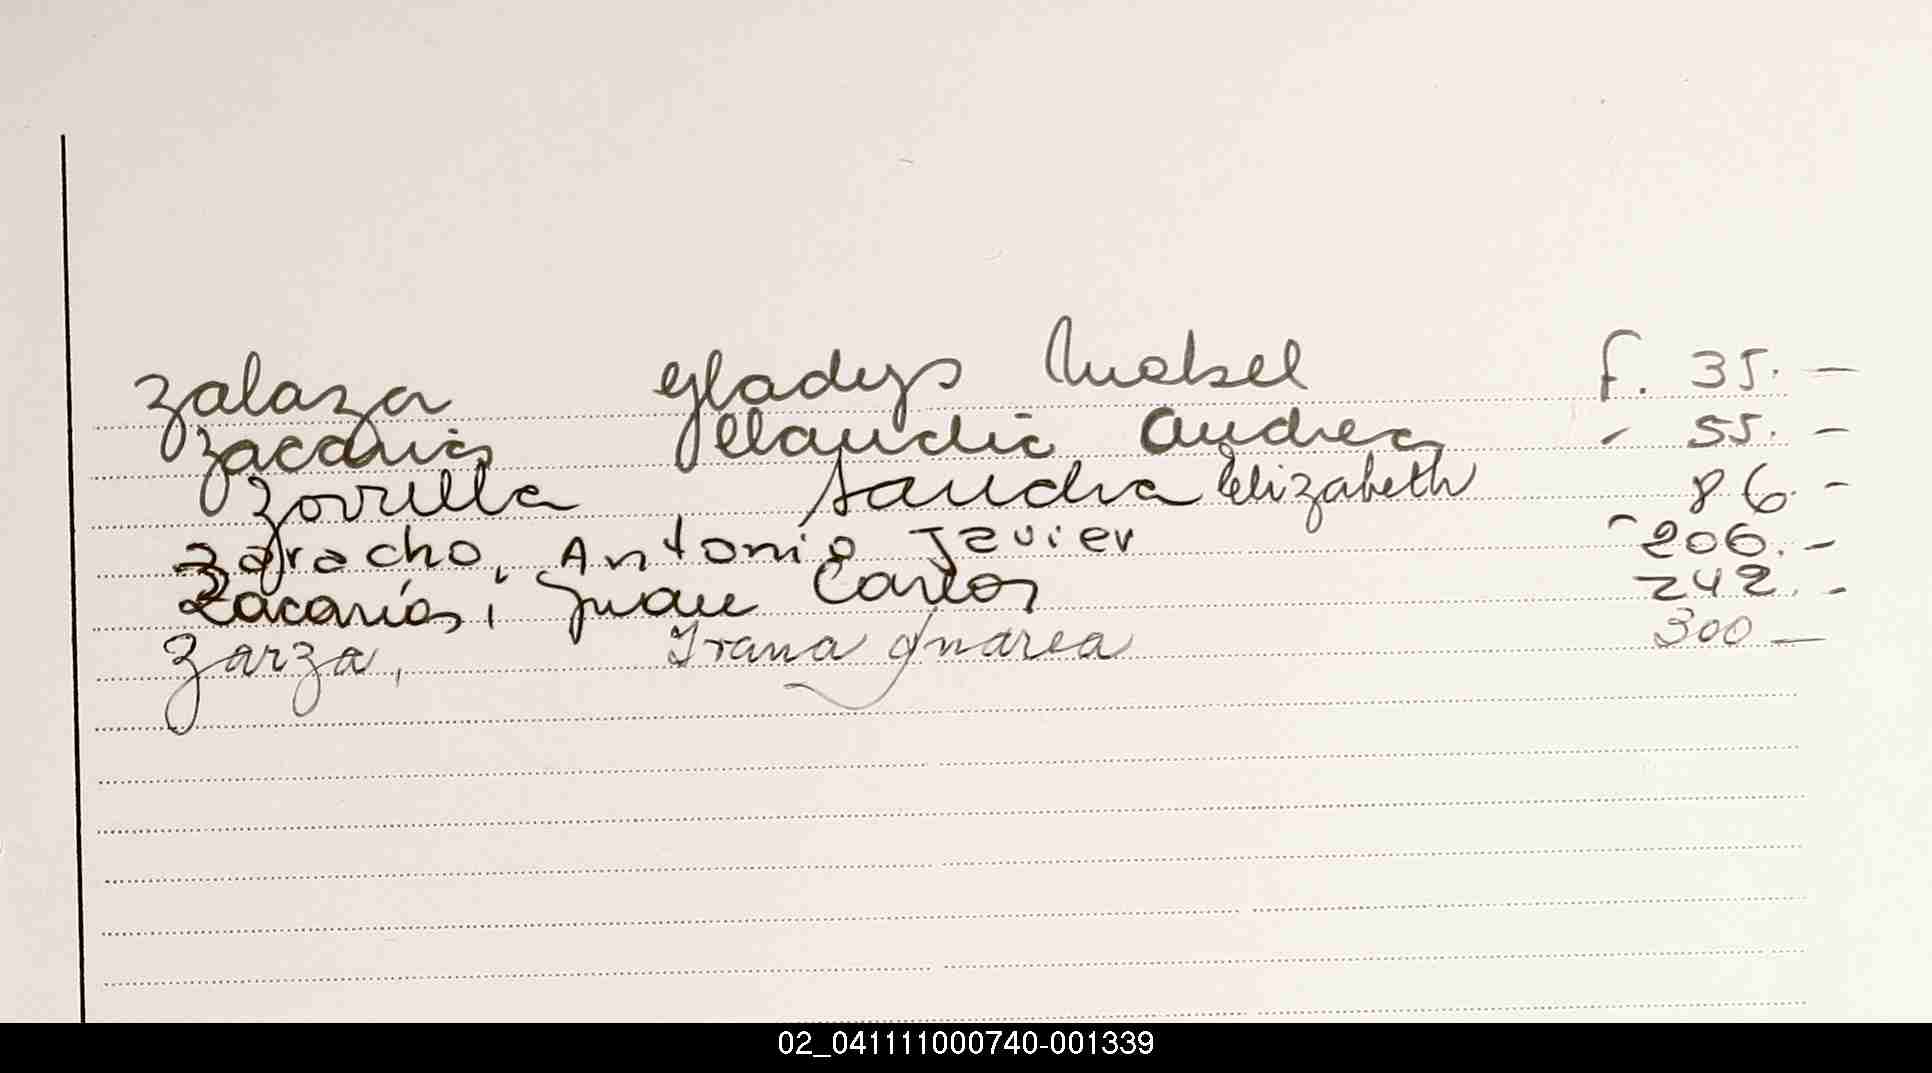 Zalaza Gladys Mabel f. 35. —
Zacarias Claudia Andrea - 55. —
Zorrilla Sandra Elizabeth 86. -
Zaracho, Antonio Javier - 206. -
Zacarías, Juan Carlos 242. -
Zarza, 300 —
02_041111000740-001339